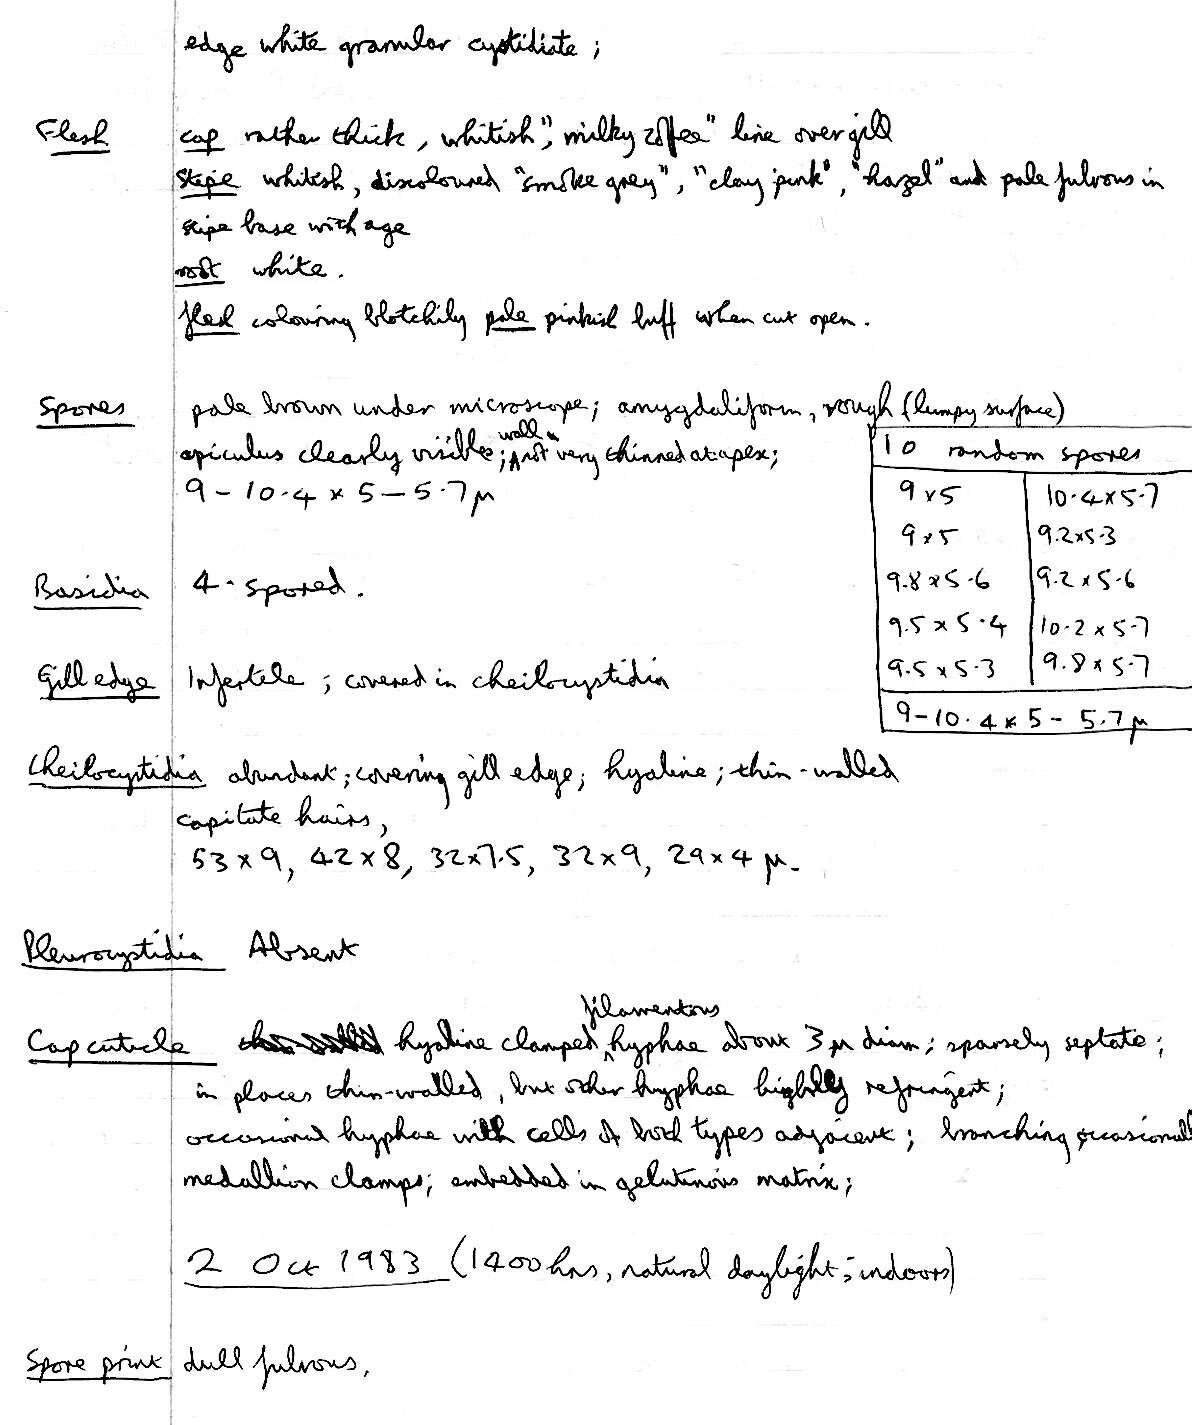 edge white granular cystidiate;
Flesh cap rather thick, whitish", milky coffee" line over gill
stipe whitish, discoloured "smoke grey", "clay pink", "hazel" and pale fulvous in
stipe base with age
root white.
flesh colouring blotchily pale pinkish buff when cut open.
Spores pale brown under microscope; amygdaliform, rough (lumpy surface)
apiculus clearly visible; wall not very thinned at apex;
9-10.4 x 5-5.7 μ
10 random spores
9 x 5 10.4 x 5.7
9 x 5 9.2 x 5.3
9.8 x 5.6 9.2 x 5.6
9.5 x 5.4 10.2 x 5.7
9.5 x 5.3 9.8 x 5.7
9-10.4 x 5-5.7 μ
Basidia 4-spored.
Gill edge Infertile; covered in cheilocystidia
Cheilocystidia abundant; covering gill edge; hyaline; thin-walled
capitate hairs,
53 x 9, 42 x 8, 32 x 7.5, 32 x 9, 29 x 4 μ.
Pleurocystidia Absent
Cap cuticle hyaline clamped filamentous hyphae about 3 μ diam; sparsely septate;
in places thin-walled, but other hyphae highly refringent;
occasional hyphae with cells of both types adjacent; branching occasionally
medallion clamps; embedded in gelutinous matrix;
2 Oct 1983 (1400 hrs, natural daylight; indoors)
Spore print dull fulvous,